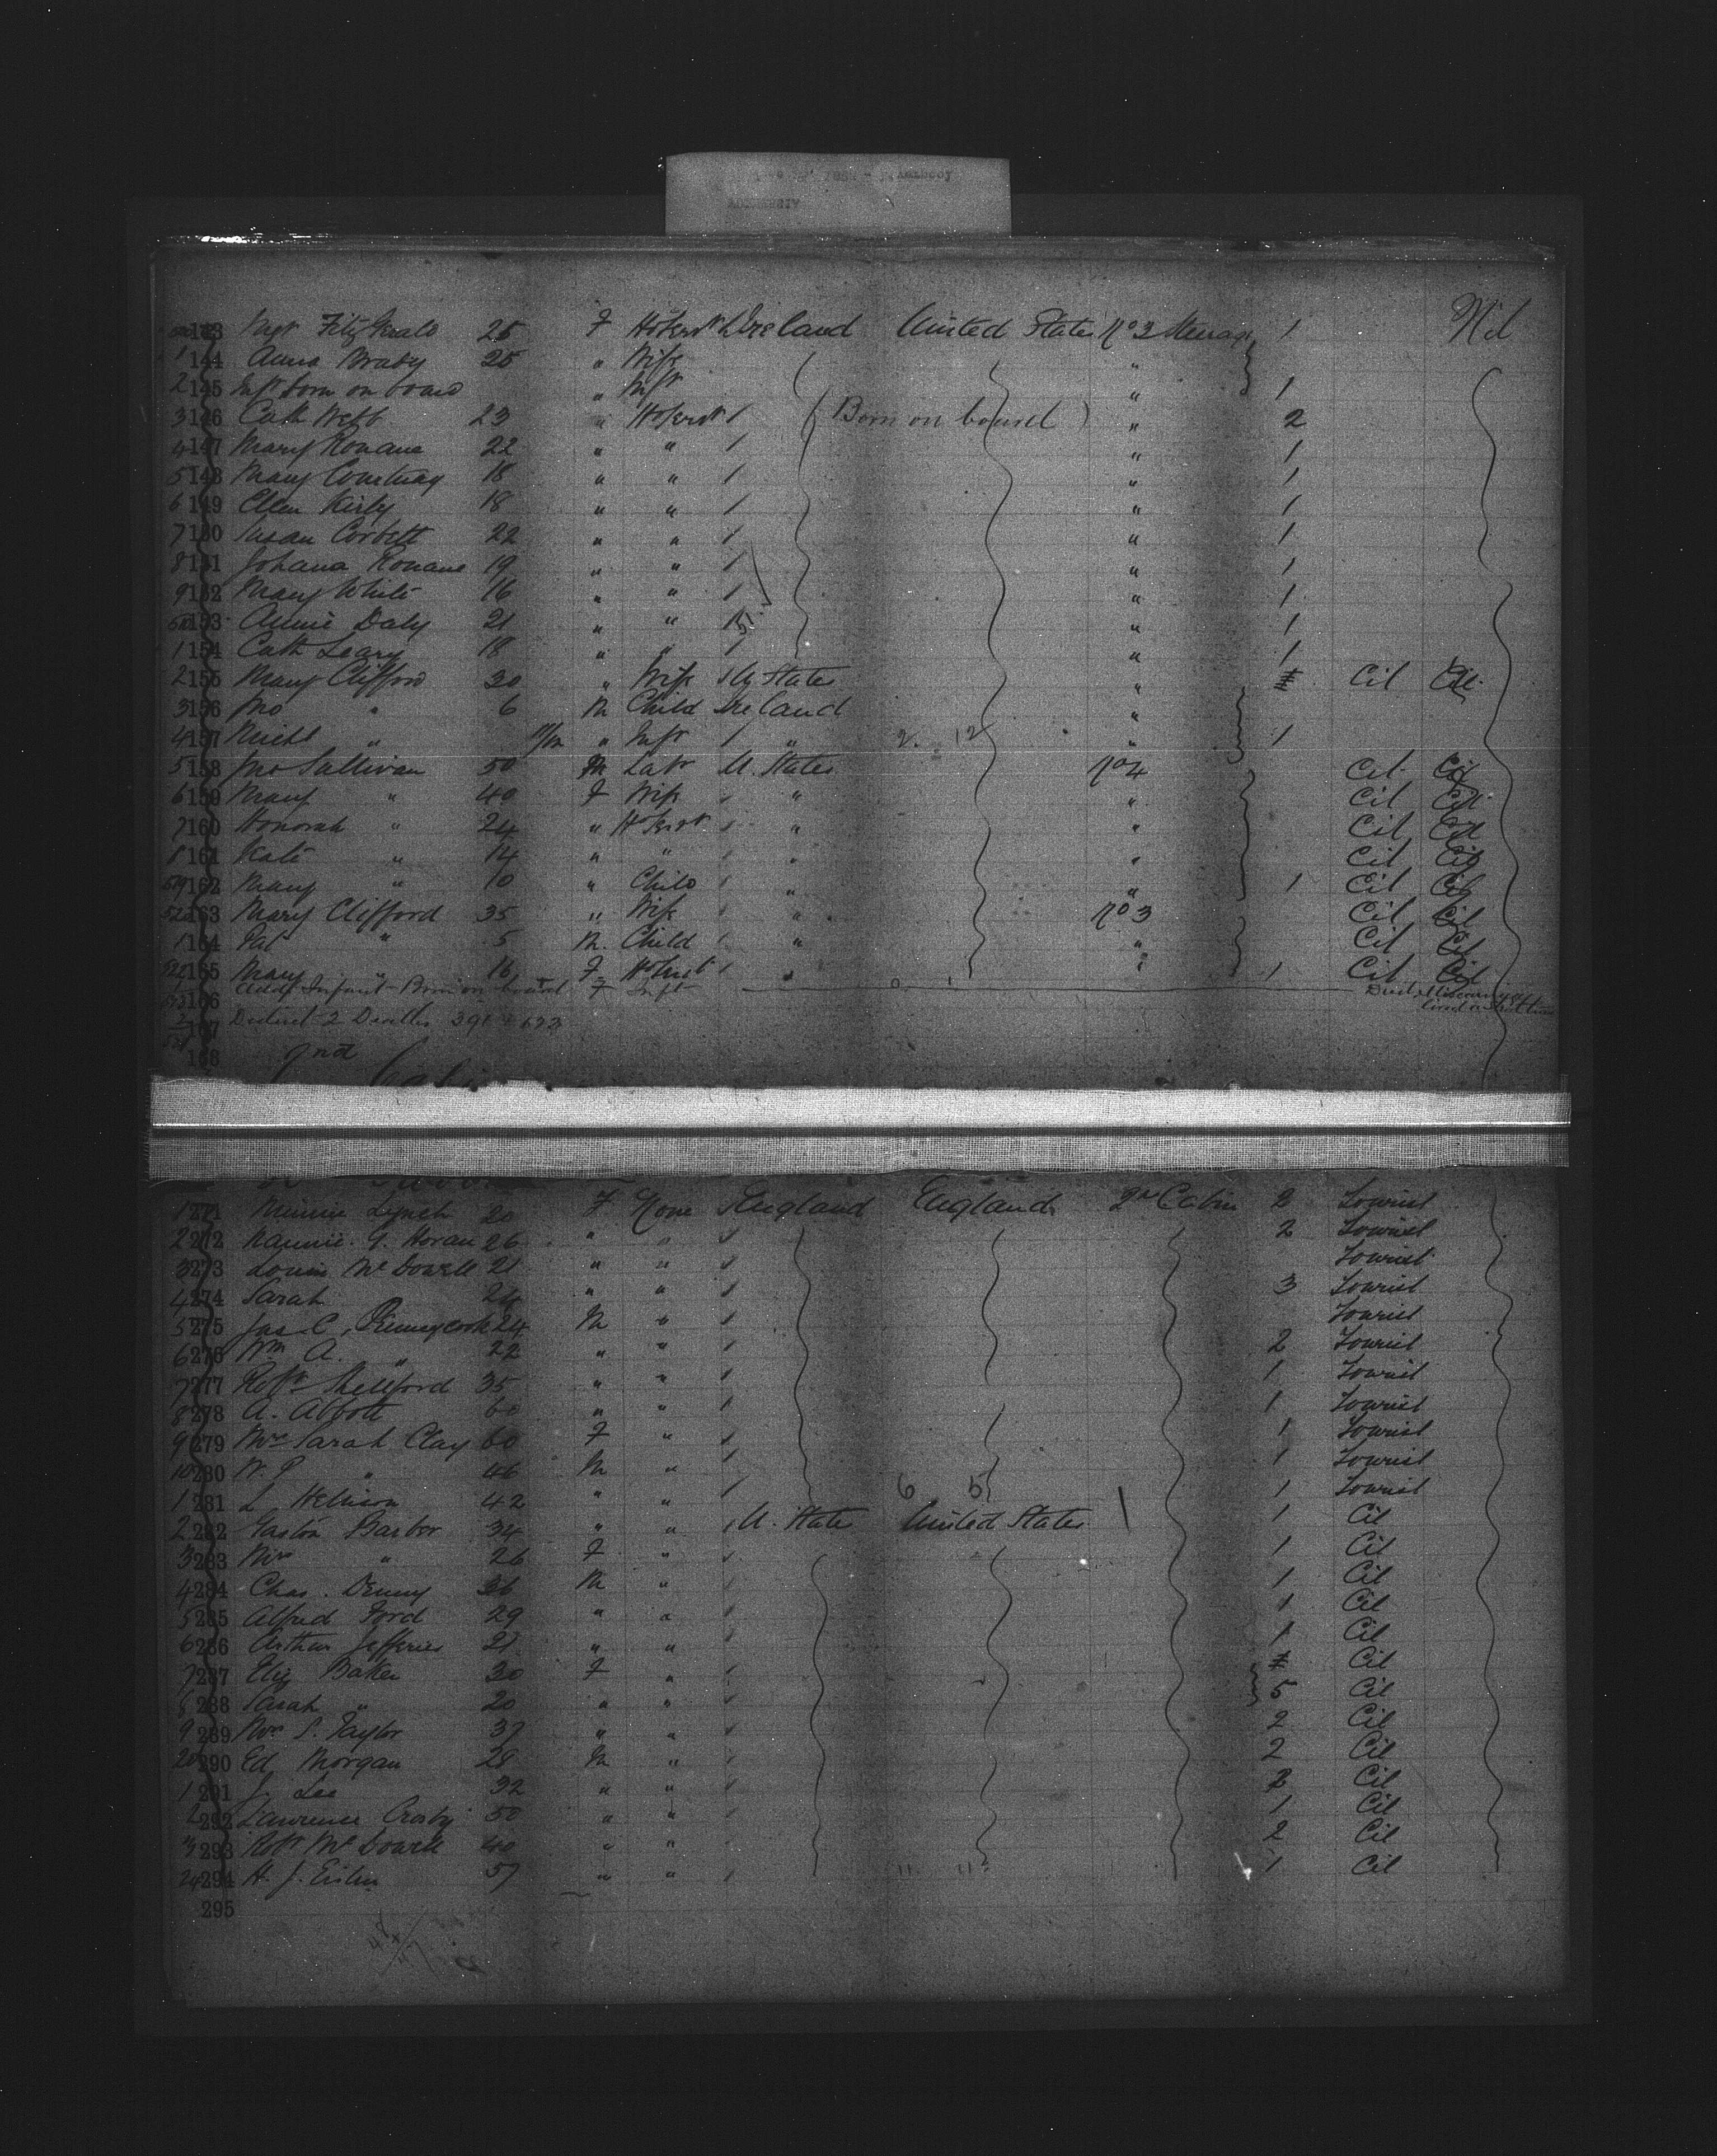 143 Mgt FitzGerald 25 F Ho Servt Ireland United States No 3 1 Nil
144 Anna Brady 25 " Wife "
145 Inft born on board " Inft " 1
146 Cath Webb 23 " Ho Servt / (Born on board) " 2
147 Mary Ronane 22 " " / " 1
148 Mary Courtney 18 " " / " 1
149 Ellen Kirby 18 " " / " 1
150 Susan Corbett 22 " " / " 1
151 Johana Ronane 19 " " / " 1
152 Mary White 16 " " / " 1
153 Annie Daly 21 " " " 1
154 Cath Leary 18 " " / " 1
155 Mary Clifford 30 " Wife / U States " Cit
156 Jno " 6 M Child Ireland "
157 Michl " 11/12 " Inft / " 2. 12 " 1
158 Jno Sullivan 50 M Labr U. States No 4 Cit Cit
159 Mary " 40 F Wife " " Cit Cit
160 Honorah " 24 " Ho Servt " " Cit Cit
161 Kate " 14 " " " " Cit Cit
162 Mary " 10 " Child " " 1 Cit Cit
163 Mary Clifford 35 " Wife " No 3 Cit Cit
164 Pat " 5 M. Child " " Cit Cit
165 Mary " 16 F Ho Servt / " " 1 Cit Cit
166 Add Infant - Born on board F Inft
167 Deduct 2 Deaths 391 + 633
168 2nd Cabin
271 Minnie Lynch 20 F None England England 2nd Cabin 2 Tourist
272 Nannie. G. Horan 26 " " 2 Tourist
273 Louis McDowell 21 " " Tourist
274 Sarah 24 " " 3 Tourist
275 Jas. C. Pennycook 24 M " Tourist
276 Wm A. " 22 " " 2 Tourist
277 Robt Shelford 35 " " 1 Tourist
278 A. Abbott 60 " " 1 Tourist
279 Mrs Sarah Clay 60 F " 1 Tourist
280 W. P. " 46 M " 1 Tourist
281 L. 42 " " 6 5 1 Tourist
282 Gaston Barbor 34 " " U. State United States 1 Cit
283 Mrs " 26 F " 1 Cit
284 Chas. Denny 26 M " 1 Cit
285 Alfred Ford 29 " " 1 Cit
286 Arthur Jefferies 21 " " 1 Cit
287 Eliz Baker 30 F " Cit
288 Sarah " 20 " " 5 Cit
289 Mrs S. Taylor 37 " " 2 Cit
290 Ed Morgan 28 M " 2 Cit
291 J. Lee 32 " " 2 Cit
292 Lawrence Crosby 50 " " 1 Cit
293 Robt McDowell 40 " " 2 Cit
294 H. J. 57 " " 11 11 1 Cit
295